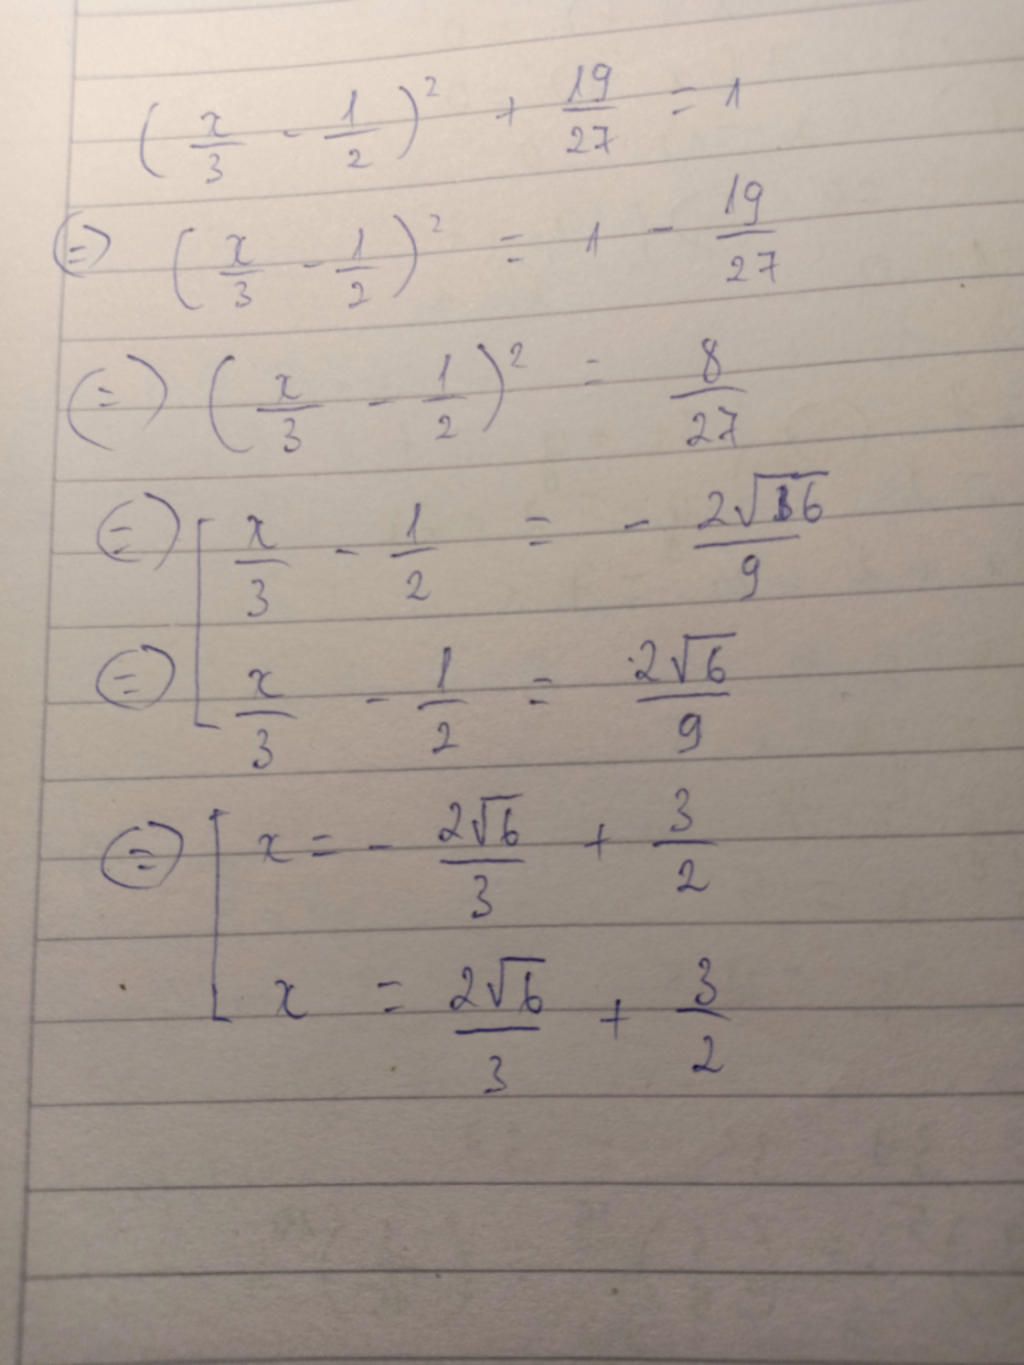 (x/3 - 1/2)² + 19/27 = 1
(=) (x/3 - 1/2)² = 1 - 19/27
(=) (x/3 - 1/2)² = 8/27
(=) [ x/3 - 1/2 = - 2√6/9
(=) x/3 - 1/2 = 2√6/9
(=) [ x = - 2√6/3 + 3/2
x = 2√6/3 + 3/2